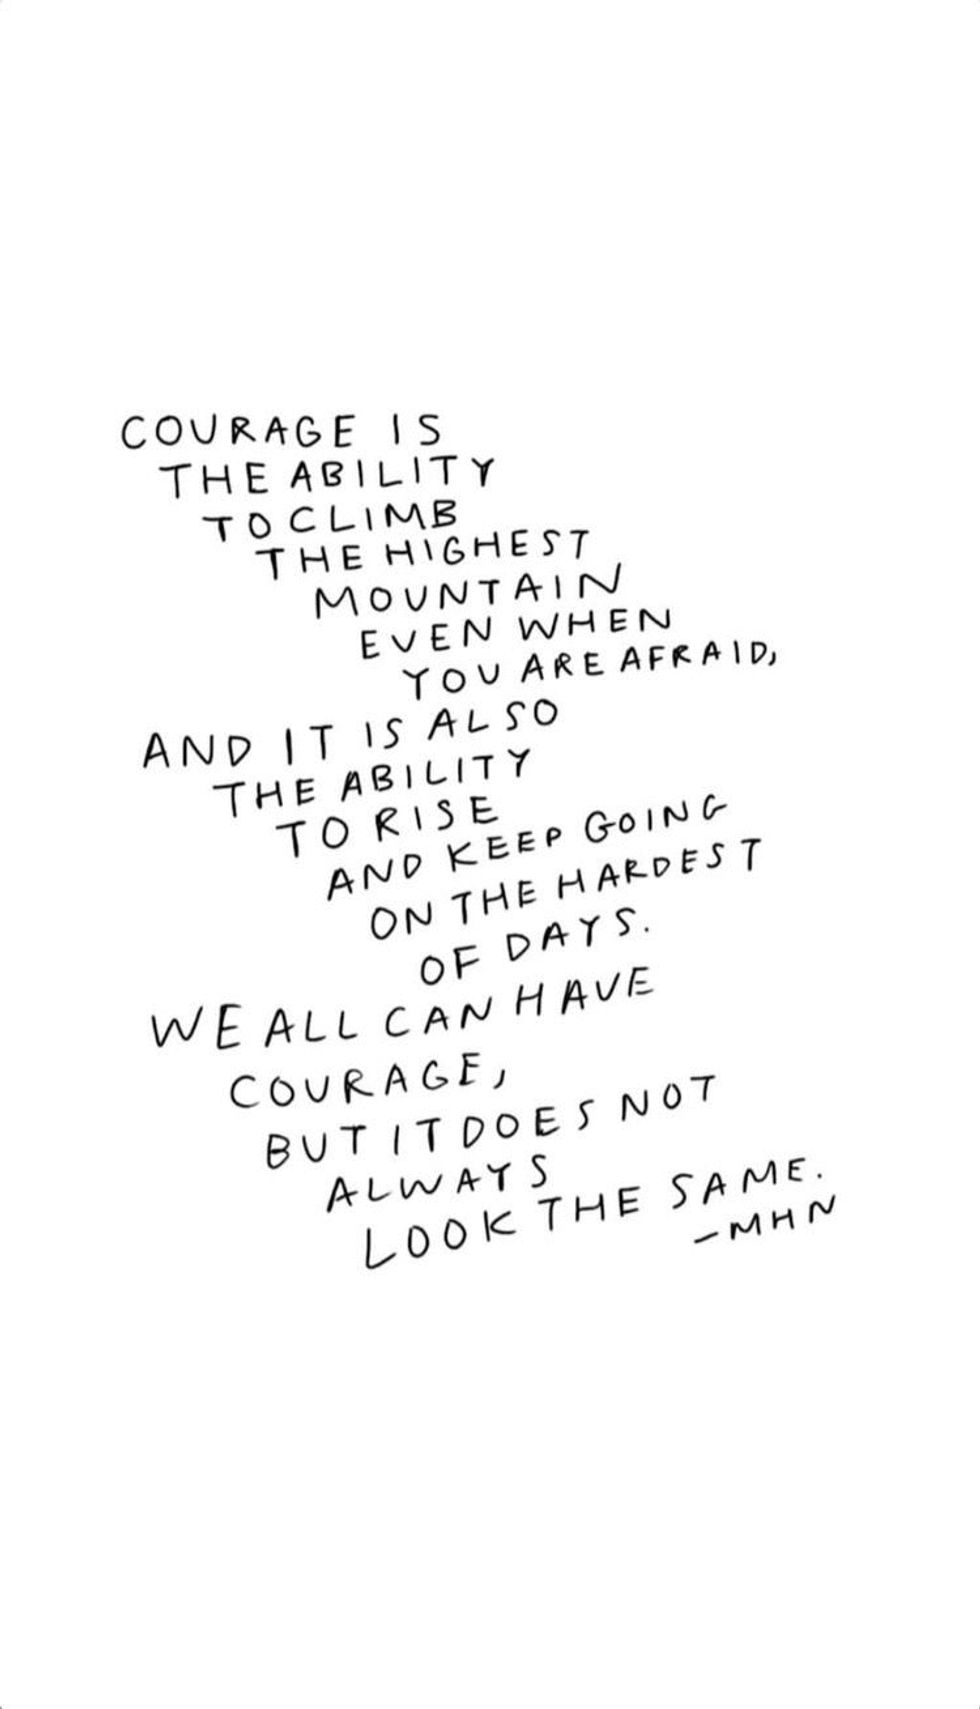 COURAGE IS
THE ABILITY
TO CLIMB
THE HIGHEST
MOUNTAIN
EVEN WHEN
YOU ARE AFRAID,
AND IT IS ALSO
THE ABILITY
TO RISE
AND KEEP GOING
ON THE HARDEST
OF DAYS.
WE ALL CAN HAVE
COURAGE,
BUT IT DOES NOT
ALWAYS
LOOK THE SAME.
-MHN